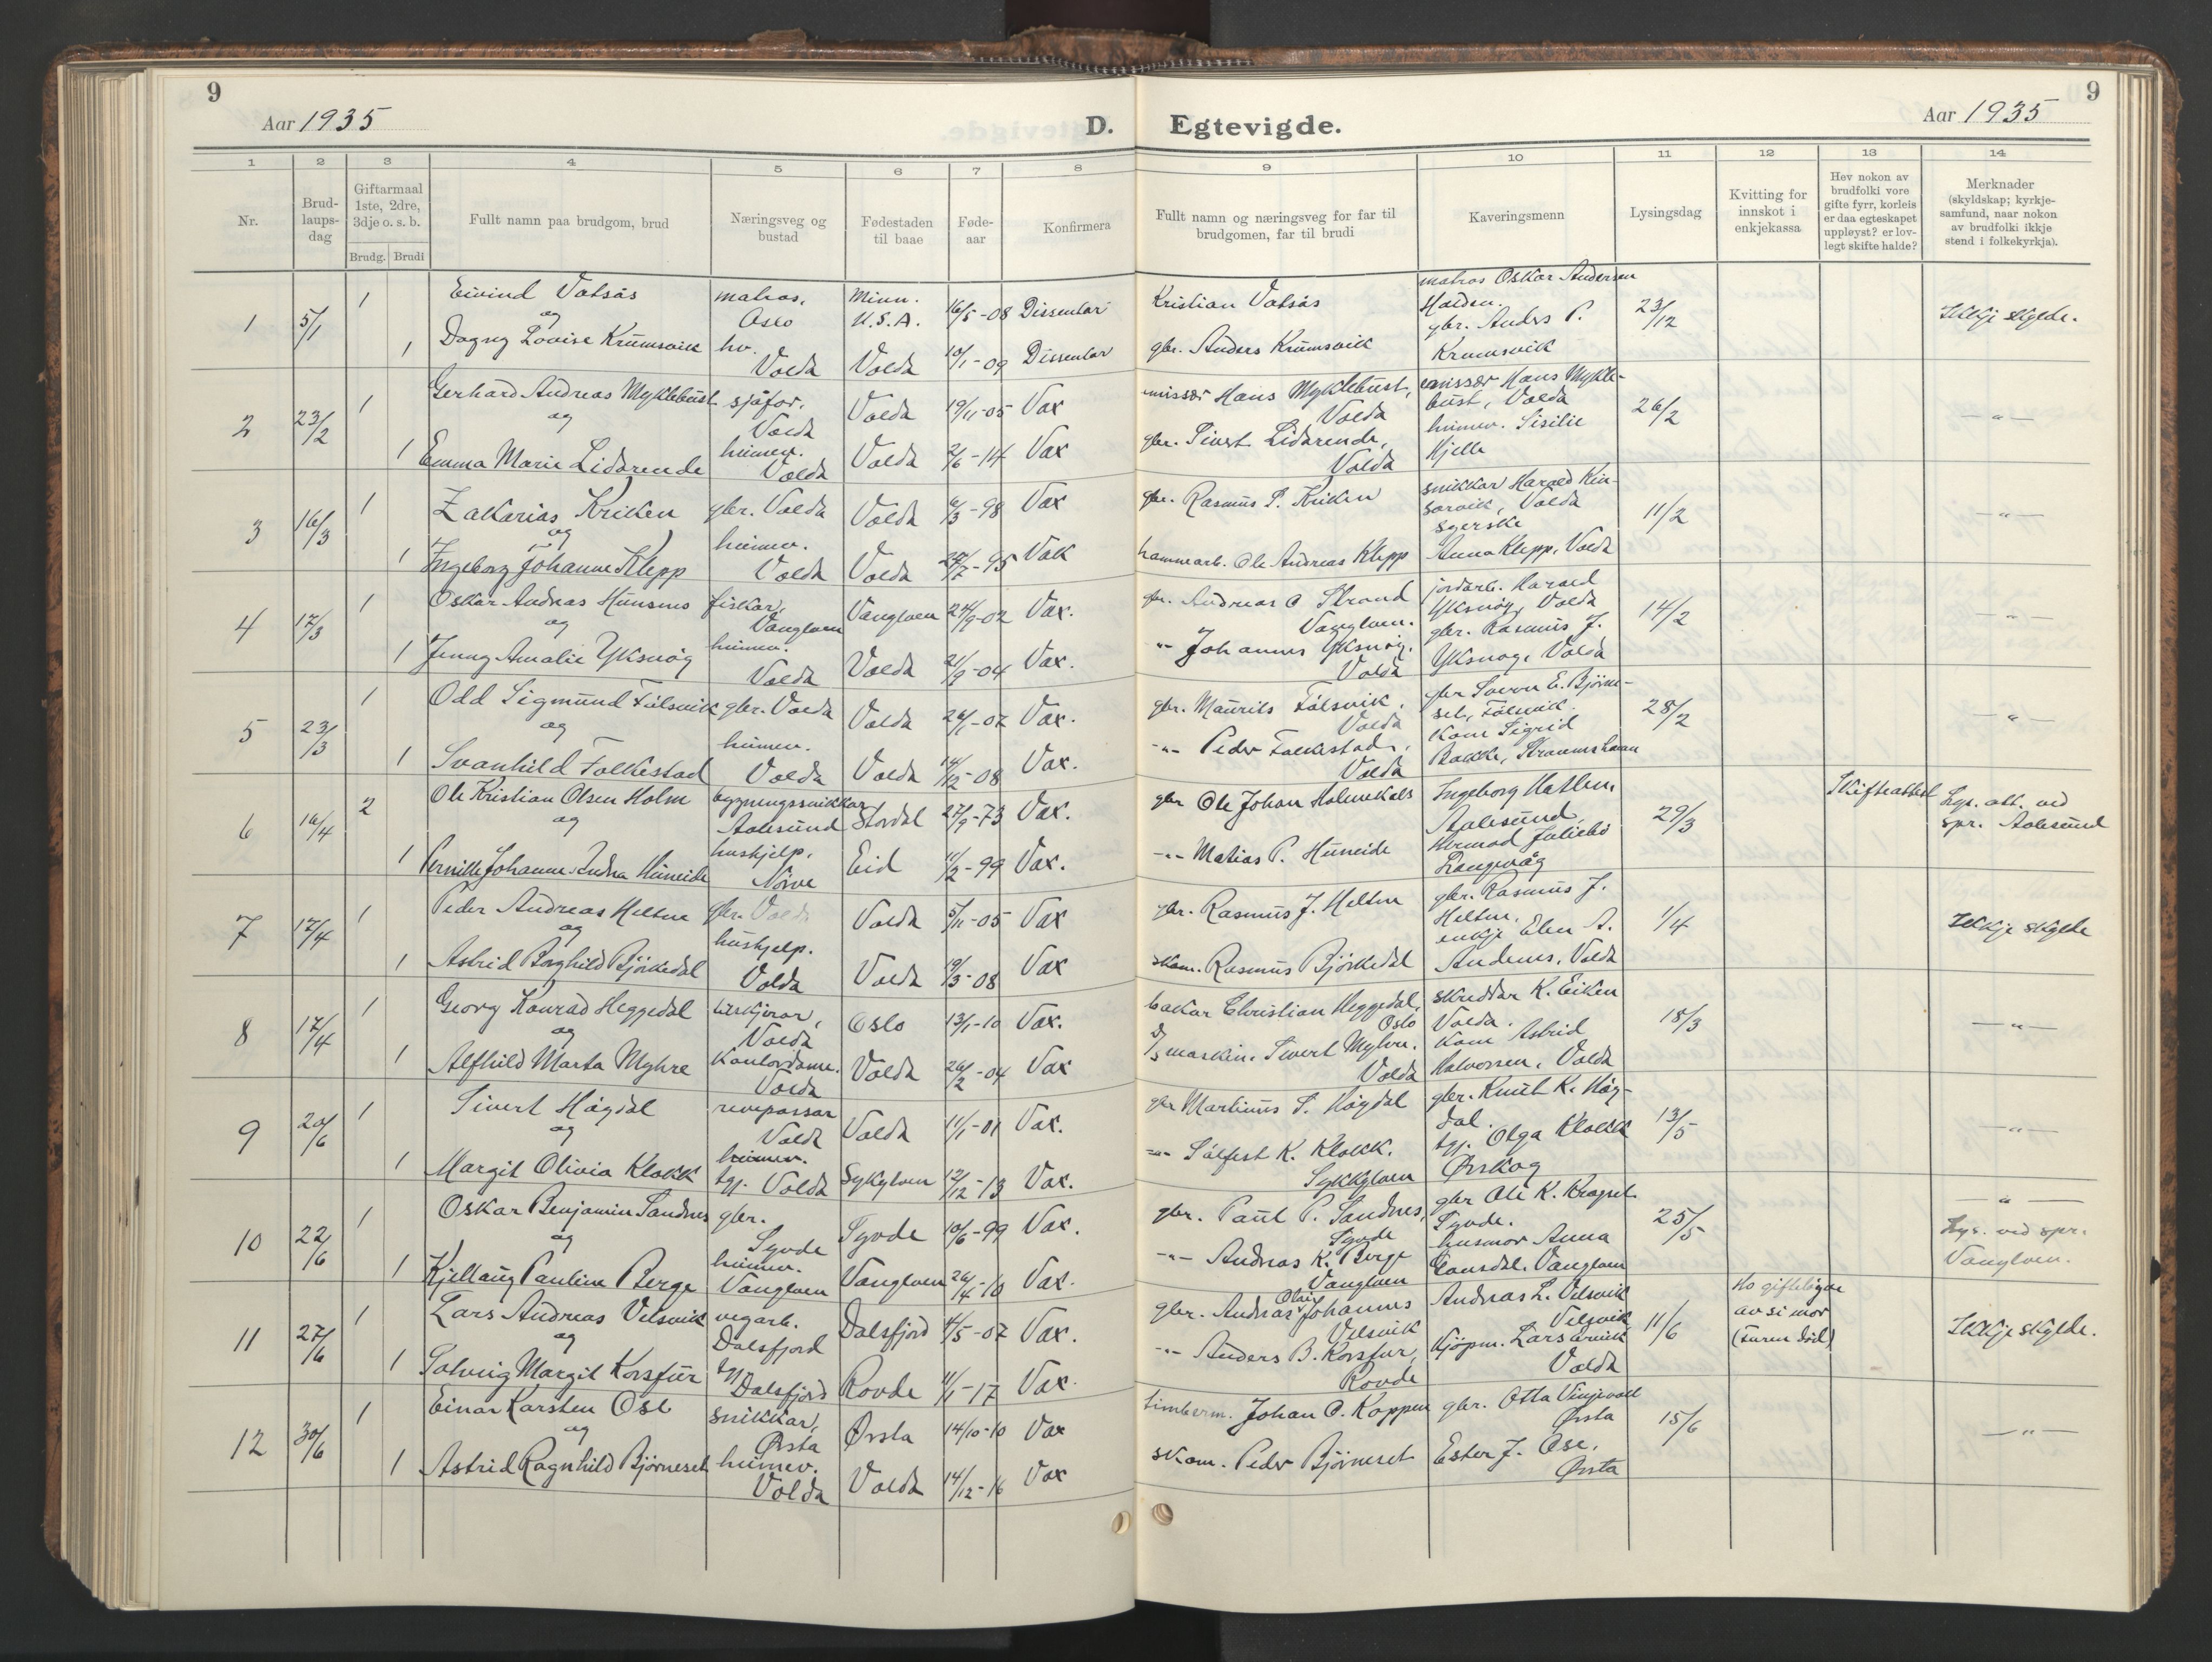 9
Aar 1935
D.
1 2 3 4 5 6 7 8
Nr.
Brud-laups-dag
Giftarmaal 1ste, 2dre, 3dje o. s. b.
Brudg. Brudi
Fullt namn paa brudgom, brud
Næringsveg og bustad
Fødestaden til baae
Føde-aar
Konfirmera
1 5/1 1 Eivind Vatsås matros, Minn. 16/5-08 Dissentar
og Oslo U.S.A.
1 Dagny Lovise Krumsvik hv. Volda Volda 10/1-09 Dissentar
2 23/2 1 Gerhard Andreas Myklebust sjåfør, Volda Volda 19/11-05 Vax
og
1 Emma Marie Lidarende heimev. Volda Volda 2/6-14 Vax
3 16/3 1 Zakarias Kriken gbr. Volda Volda 6/3-98 Vax
og
1 Ingeborg Johanne Klepp heimev. Volda Volda -95 Vax
4 17/3 1 Oskar Andreas Hunsnes fiskar, Vanylven Vanylven 24/9-02 Vax.
og
1 Jenny Amalie Yksnøy heimev. Volda Volda 21/9-04 Vax.
5 23/3 1 Odd Sigmund Folsvik gbr. Volda Volda 26/1-07 Vax.
og
1 Svanhild Folkestad heimev. Volda Volda 14/12-08 Vax.
6 16/4 2 Ole Kristian Olsen Holm bygningssnikkar Aalesund Stordal 27/9-73 Vax.
og
1 Pernille Johanne Indna Huneide hushjelp, Nørve Eid 11/2-99 Vax.
7 17/4 1 Peder Andreas Heltne gbr. Volda Volda 5/11-05 Vax
og
1 Astrid Borghild Bjørkedal hushjelp. Volda Volda 19/3-08 Vax
8 17/4 1 Georg Konrad Heggedal Volda Oslo 13/1-10 Vax.
og
1 Alfhild Marta Myhre kontordame. Volda Volda 26/2-04 Vax
9 20/6 1 Sivert Høydal revepassar Volda Volda 11/1-01 Vax.
og
1 Margit Olivia Klokk heimev. tgj. Volda Sykylven 12/12-13 Vax.
10 22/6 1 Oskar Benjamin Sandnes gbr. Syvde Syvde 10/6-99 Vax.
og
1 Kjellaug Pauline Berge heimev. Vanylven Vanylven 26/4-10 Vax.
11 27/6 1 Lars Andreas Velsvik vegarb. Dalsfjord Dalsfjord 4/5-07 Vax.
og
1 Solveig Margit Korsfur tgj Dalsfjord Rovde 11/1-17 Vax.
12 30/6 1 Einar Karsten Ose snikkar, Ørsta Ørsta 14/10-10 Vax
og
1 Astrid Ragnhild Bjørneset heimev. Volda Volda 14/12-16 Vax
Egtevigde.
Aar 1935
9
9 10 11 12 13 14
Fullt namn og næringsveg for far til brudgomen, far til brudi
Kaveringsmenn
Lysingsdag
Kvitting for innskot i enkjekassa
Hev nokon av brudfolki vore gifte fyrr, korleis er daa egteskapet uppløyst? er lov-legt skifte halde?
Merknader (skyldskap; kyrkje-samfund, naar nokon av brudfolki ikkje stend i folkekyrkja).
Kristian Vatsås matros Oskar Andersen Halden. 23/12 Ikkje skylde.
gbr. Anders Krumsvik gbr. Anders P. Krumsvik
emissær Hans Myklebust, Volda emissær Hans Myklebust, Volda 26/2 — „ —
gbr. Sivert Lidarende, Volda heimev. Sisilie Hjelle
gbr. Rasmus P. Kriken snikkar Harald Kinsarvik, Volda 11/2 — „ —
hammarb. Ole Andreas Klepp syerske Anna Klepp, Volda
gbr. Andreas O Strand Vanylven. jordarb. Harald Yksnøy, Volda 14/2 — „ —
-„- Johannes Yksnøy. Volda gbr. Rasmus J. Yksnøy, Volda
gbr. Maurits Folsvik, Volda gbr Søren E. Bjørneset, Folsvik. 28/2 — „ —
-„- Peder Folkestad, Volda Kom Sigrid Bakke, Straumshamn
gbr Ole Johan Holmekals Ingeborg Hatlen, Aalesund, 29/3 Skifteattest Lys. att. ved spr. Aalesund
-„- Matias P. Huneide Hermod Juliebø Langevåg
gbr. Rasmus J. Heltne gbr. Rasmus J. Heltne. 1/4 Ikkje skylde
skom. Rasmus Bjørkedal enkje Elen A. Andenes, Volda
bakar Christian Heggedal, Oslo skreddar K. Eiken Volda. 18/3 — „ —
D/S maskin. Sivert Myhre. Volda Kom Astrid Halvorsen, Volda
gbr Martinus S. Høydal gbr. Knut K. Høydal. 13/5 — „ —
-„- Sølfest K. Klokk, Sykkylven tgj. Olga Klokk Ørskog
gbr. Paul P. Sandnes, Syvde gbr Ole K. Kragset Syvde. 25/5 — „ — Lys. ved spr. Vanylven.
-„- Andreas K. Berge Vanylven husmor Anna Gausdal, Vanylven
gbr. Andreas Olai Johannes Velsvik Andreas L. Velsvik Velsvik, 11/6 Ho gifteløyve av si mor (faren død) Ikkje skylde.
-„- Anders B. Korsfur, Rovde Kjøpm. Lars Volda
timberm. Johan O. Koppen gbr. Otta Vinjevoll Ørsta 15/6 — „ —
skom. Peder Bjørneset Ester J. Ose, Ørsta